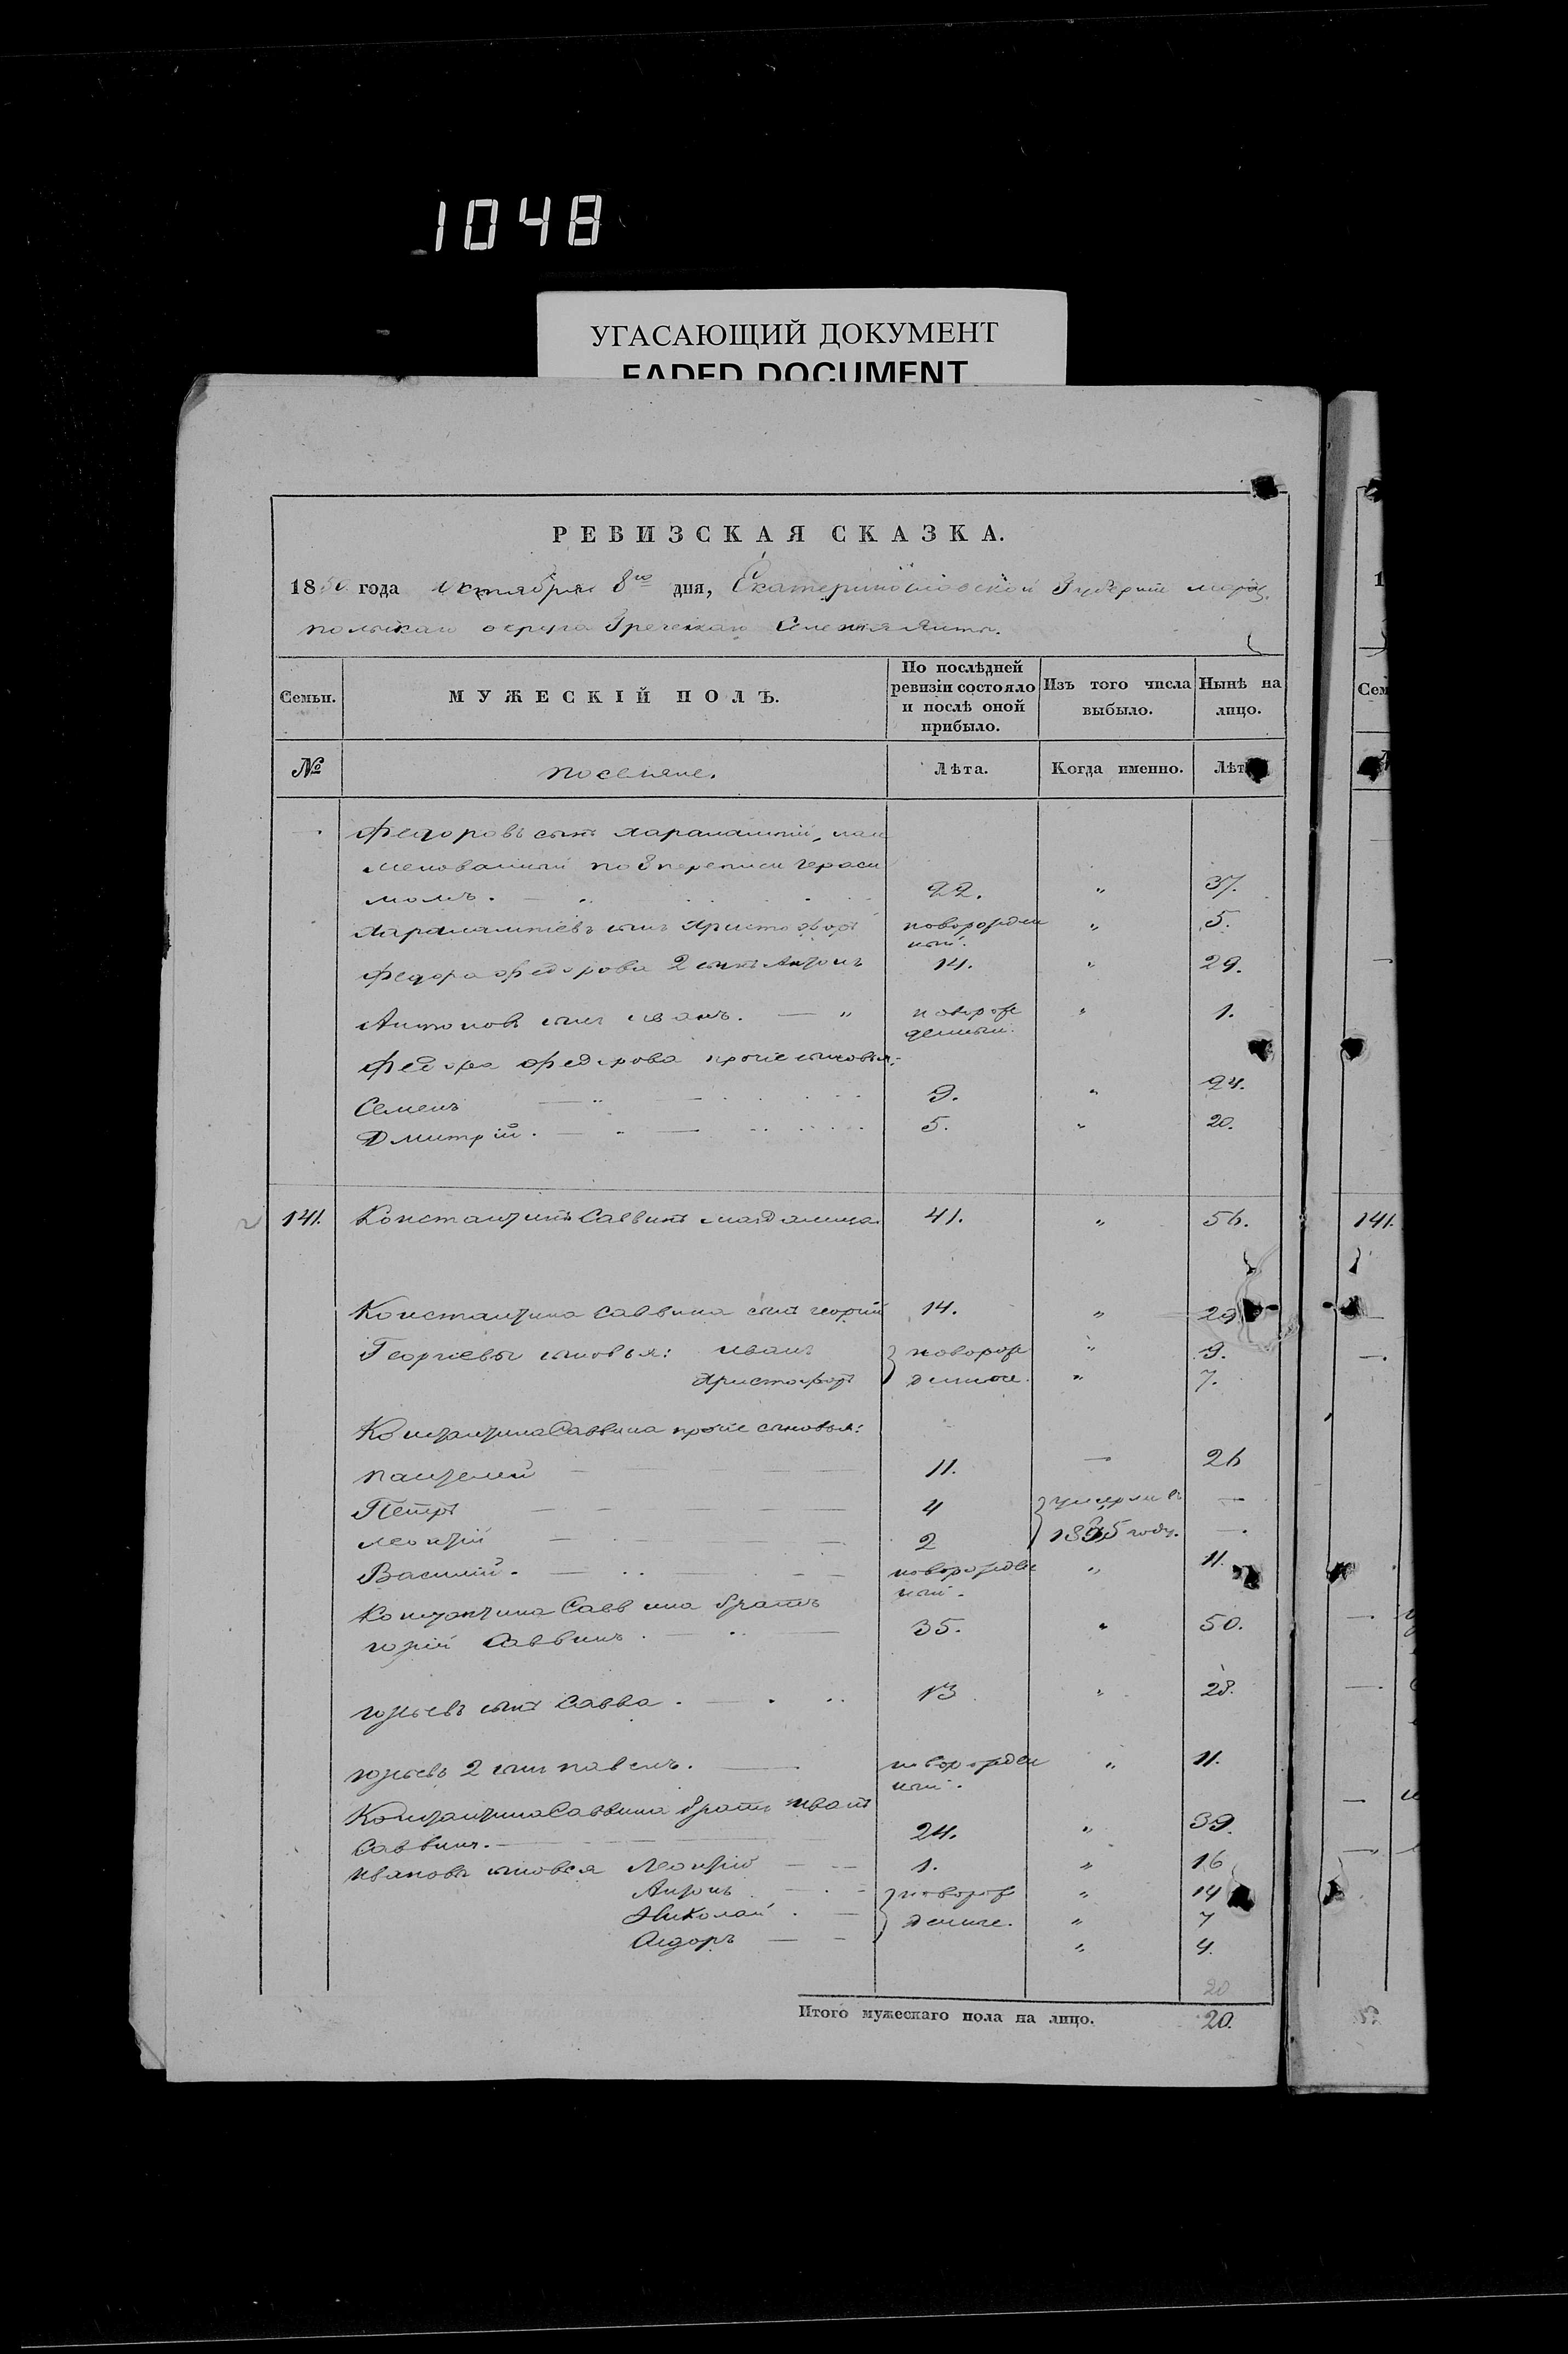 1048
УГАСАЮЩИЙ ДОКУМЕНТ
FADED DOCUMENT
РЕВИЗСКАЯ СКАЗКА.
1850 года Октября 8го дня, Екатеринославской Губернии Мариу
польскаго округа Греческаго Селения Ялты.
Семьи.
МУЖЕСКІЙ ПОЛЪ.
По послѣдней ревизіи состояло и послѣ оной прибыло.
Изъ того числа выбыло.
Нынѣ на лицо.
№ поселяне. Лѣта. Когда именно. Лѣт
Федоровъ сынъ Харалампій, наи
менованный по 8 переписи Гераси
момъ. 22. „ 37.
Харалампіевъ сынъ Христофоръ новорожден „ 5.
ный.
Федора Федорова 2 сынъ Антонъ 14. „ 29.
Антоновъ сынъ Иванъ. — „ новорож „ 1.
денный.
Федора Федорова прочіе сыновья:
Семенъ 9. „ 24.
Дмитрій. 5. „ 20.
141. Константинъ Саввинъ 41. „ 56.
Константина Саввина сынъ Георгій 14. „ 29
Георгіевы сыновья: Иванъ новорож „ 9.
Христофоръ денные. „ 7.
Константина Саввина прочіе сыновья:
Пантелей 11. — 26
Петръ 4 умерли въ —
Леонтій 2 1835 году. —.
Василій. новорожден „ 11.
ный.
Константина Саввина братъ
Юрій Саввинъ. 35. „ 50.
Юрьевъ сынъ Савва. 13 „ 28.
Юрьевъ 2 сынъ Павелъ. новорожден „ 11.
ный.
Константина Саввина братъ Иванъ
Саввинъ. 24. „ 39.
Ивановы сыновья Леонтій 1. „ 16
Антонъ новорож „ 14
Николай денные. „ 7
Федоръ „ 4.
20
Итого мужескаго пола на лицо. 20.
1
Сем
141.